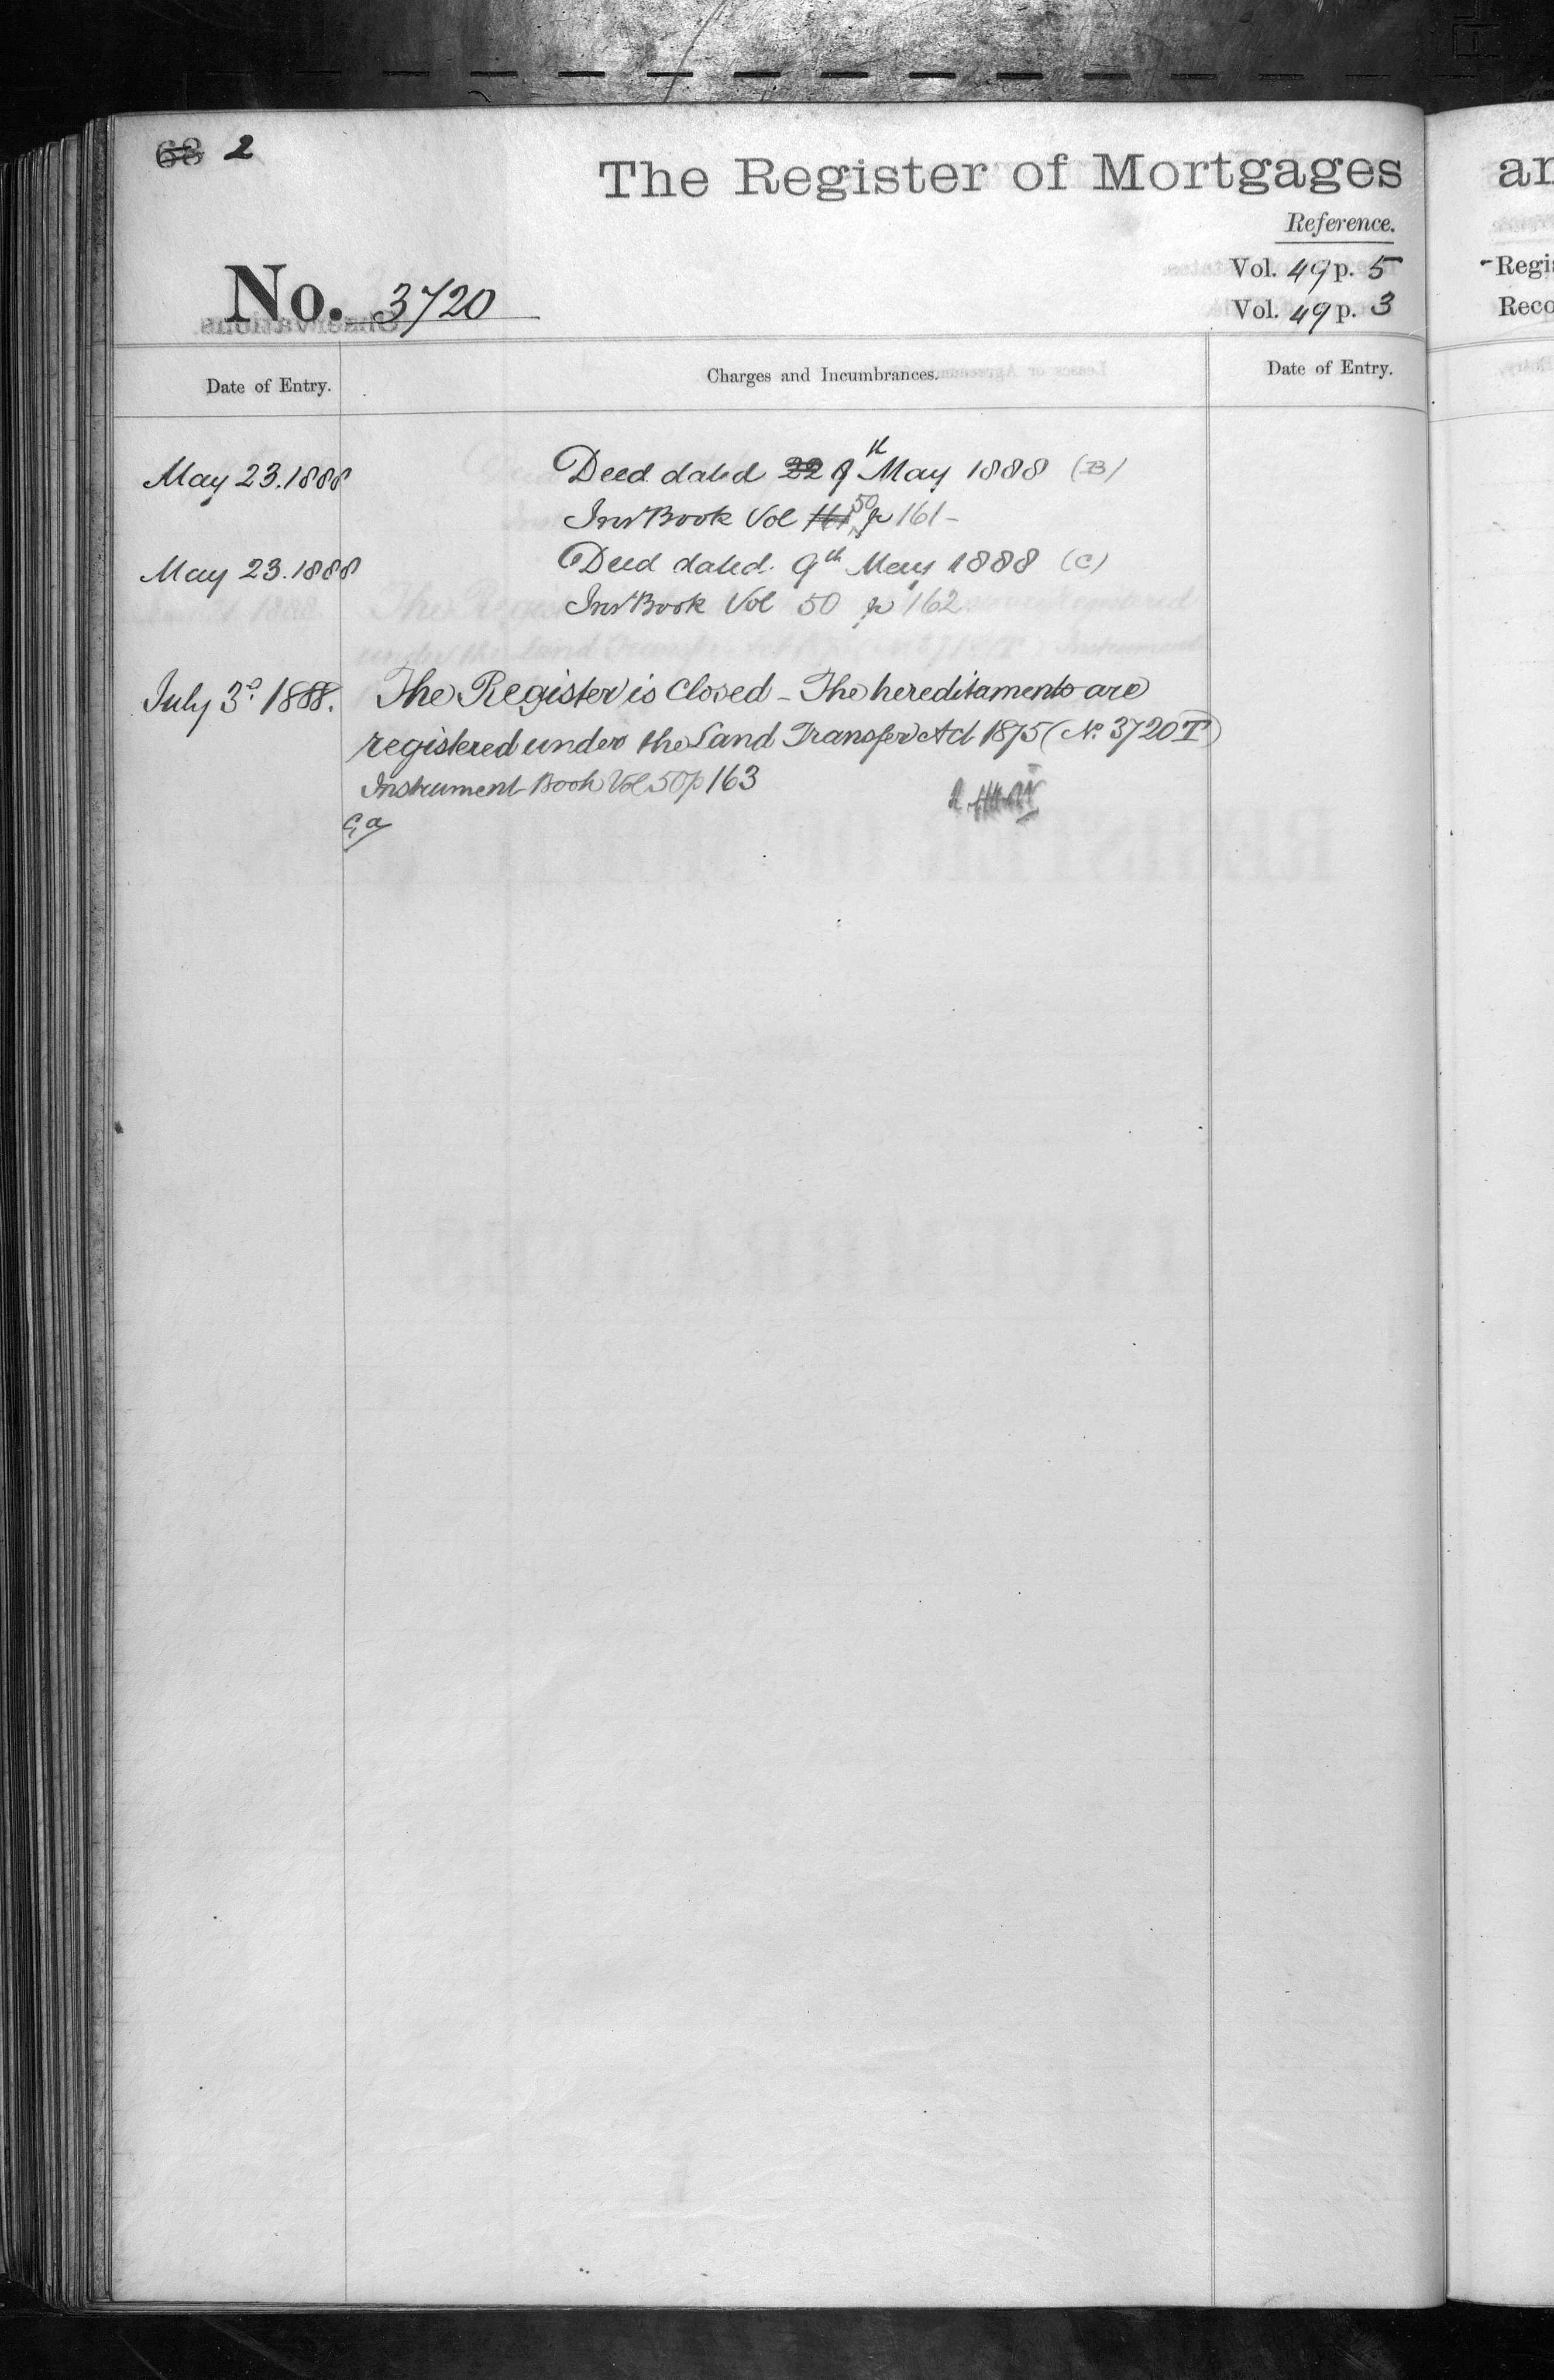 63 2
The Register of Mortgages
Reference.
Vol. 49 p. 5
Vol. 49 p. 3
No. 3720
Date of Entry.
Charges and Incumbrances.
Date of Entry.
May 23. 1888
Deed dated 22 9th May 1888 (B)
Inst Book Vol 161 50 p 161 -
May 23. 1888
Deed dated 9th May 1888 (C)
Inst Book Vol 50 p 162
July 3d. 1888.
The Register is Closed - The hereditaments are
registered under the Land Transfer Act 1875 (No. 3720 T)
Instrument Book Vol 50 p 163
an
Regis
Reco